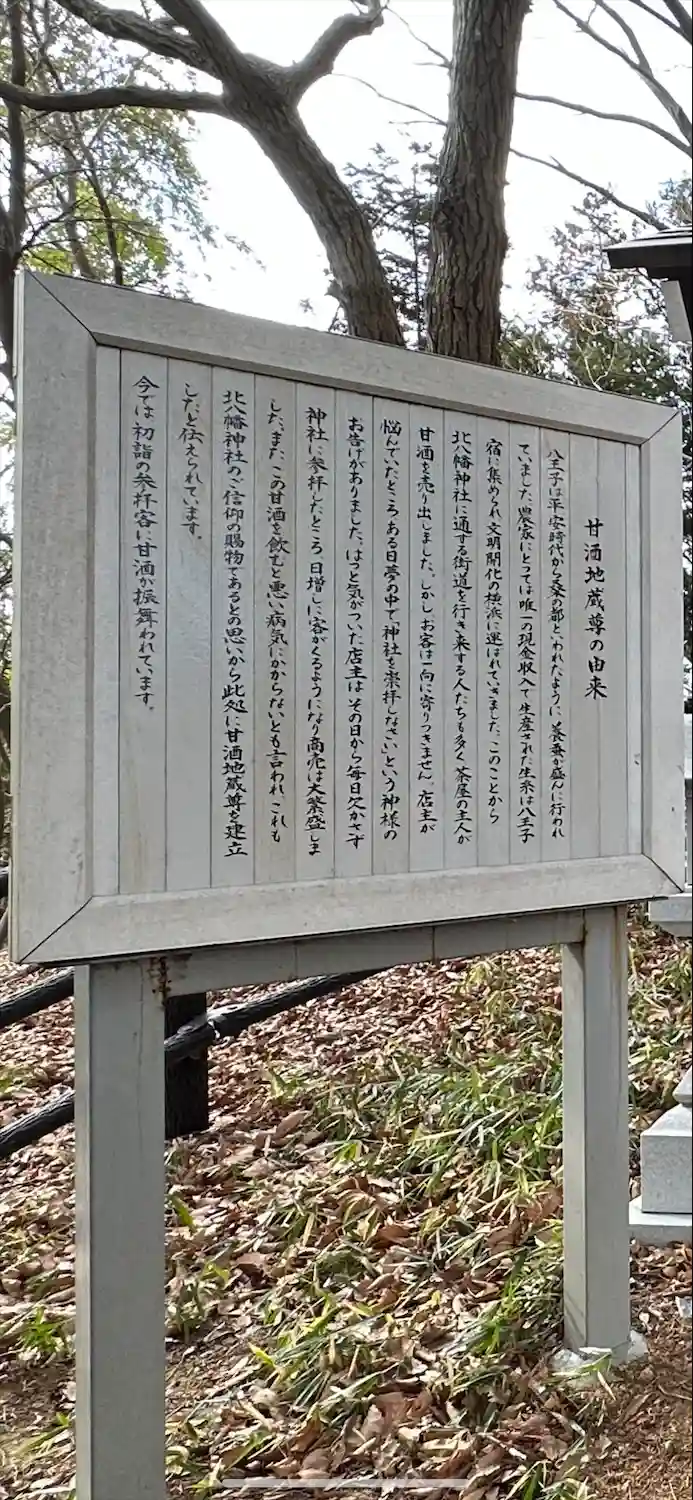 甘酒地蔵尊の由来
八王子は平安時代から桑の都と、いわれたように、養蚕が盛んに行われ
ていました。農家にとっては唯一の現金収入で生産された生糸は八王子
宿に集められ、文明開化の横浜に運ばれていきました。このことから
北八幡神社に通する街道を行き来する人たちも多く、茶屋の主人が
甘酒を売り出しました。しかし、お客は一向に寄りつきません。店主が
悩んでいたところ、ある日夢の中で「神社を崇拝しなさい」という神様の
お告げがありました。はっと気がついた店主は、その日から毎日欠かさず
神社に参拝したところ、日増しに客がくるようになり商売は大繁盛しま
した。また、この甘酒を飲むと悪い病気にかからないとも言われ、これも
北八幡神社のご信仰の賜物であるとの思いから此処に甘酒地蔵尊を建立
したと伝えられています。
今では初詣の参拝客に甘酒が振舞われています。